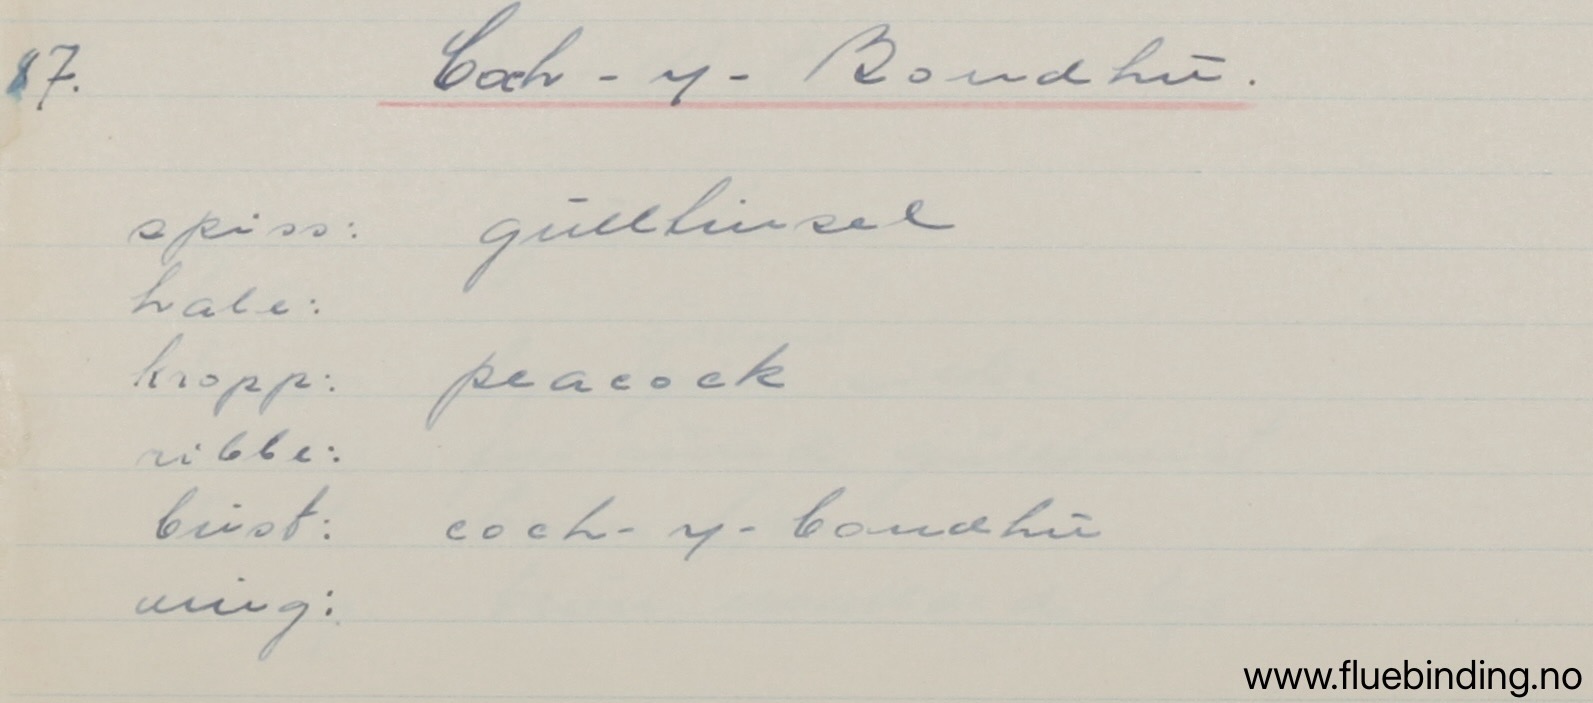 87. Coch-y-Bondhū.
spiss: gūlltinsel
hale:
kropp: peacock
ribbe:
būst: coch-y-bondhū
wing:
www.fluebinding.no